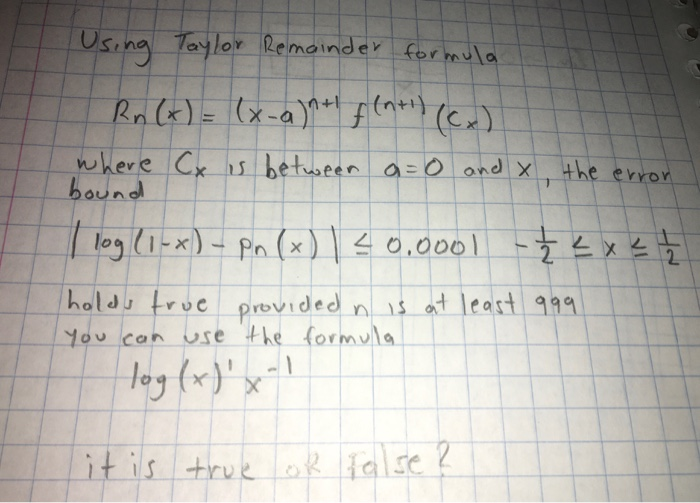 Using Taylor Remainder formula
Rn(x) = (x-a)ⁿ⁺¹ f⁽ⁿ⁺¹⁾ (Cx)
where Cx is between a=0 and x, the error
bound
| log(1-x) - pn(x) | ≤ 0.0001 -1/2 ≤ x ≤ 1/2
holds true provided n is at least 999
you can use the formula
log(x)' x⁻¹
it is true or false?